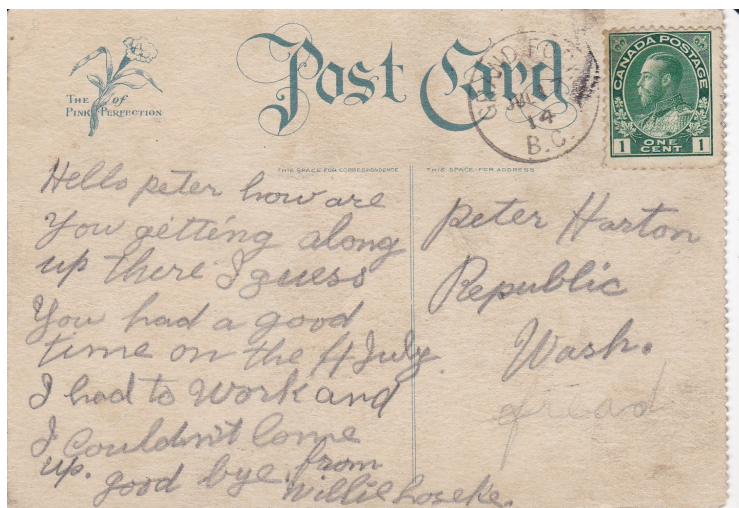 THE of
PINK PERFECTION
Post Card
GRAND FO
JUL 7
14
B.C.
CANADA POSTAGE
1 ONE CENT 1
THIS SPACE FOR CORRESPONDENCE
THIS SPACE FOR ADDRESS
Hello peter how are
You getting along
up there I guess
You had a good
time on the 4 July
I had to work and
I Couldn't Come
up. good bye. from
Willie Loseke.
Peter Harton
Republic
Wash.